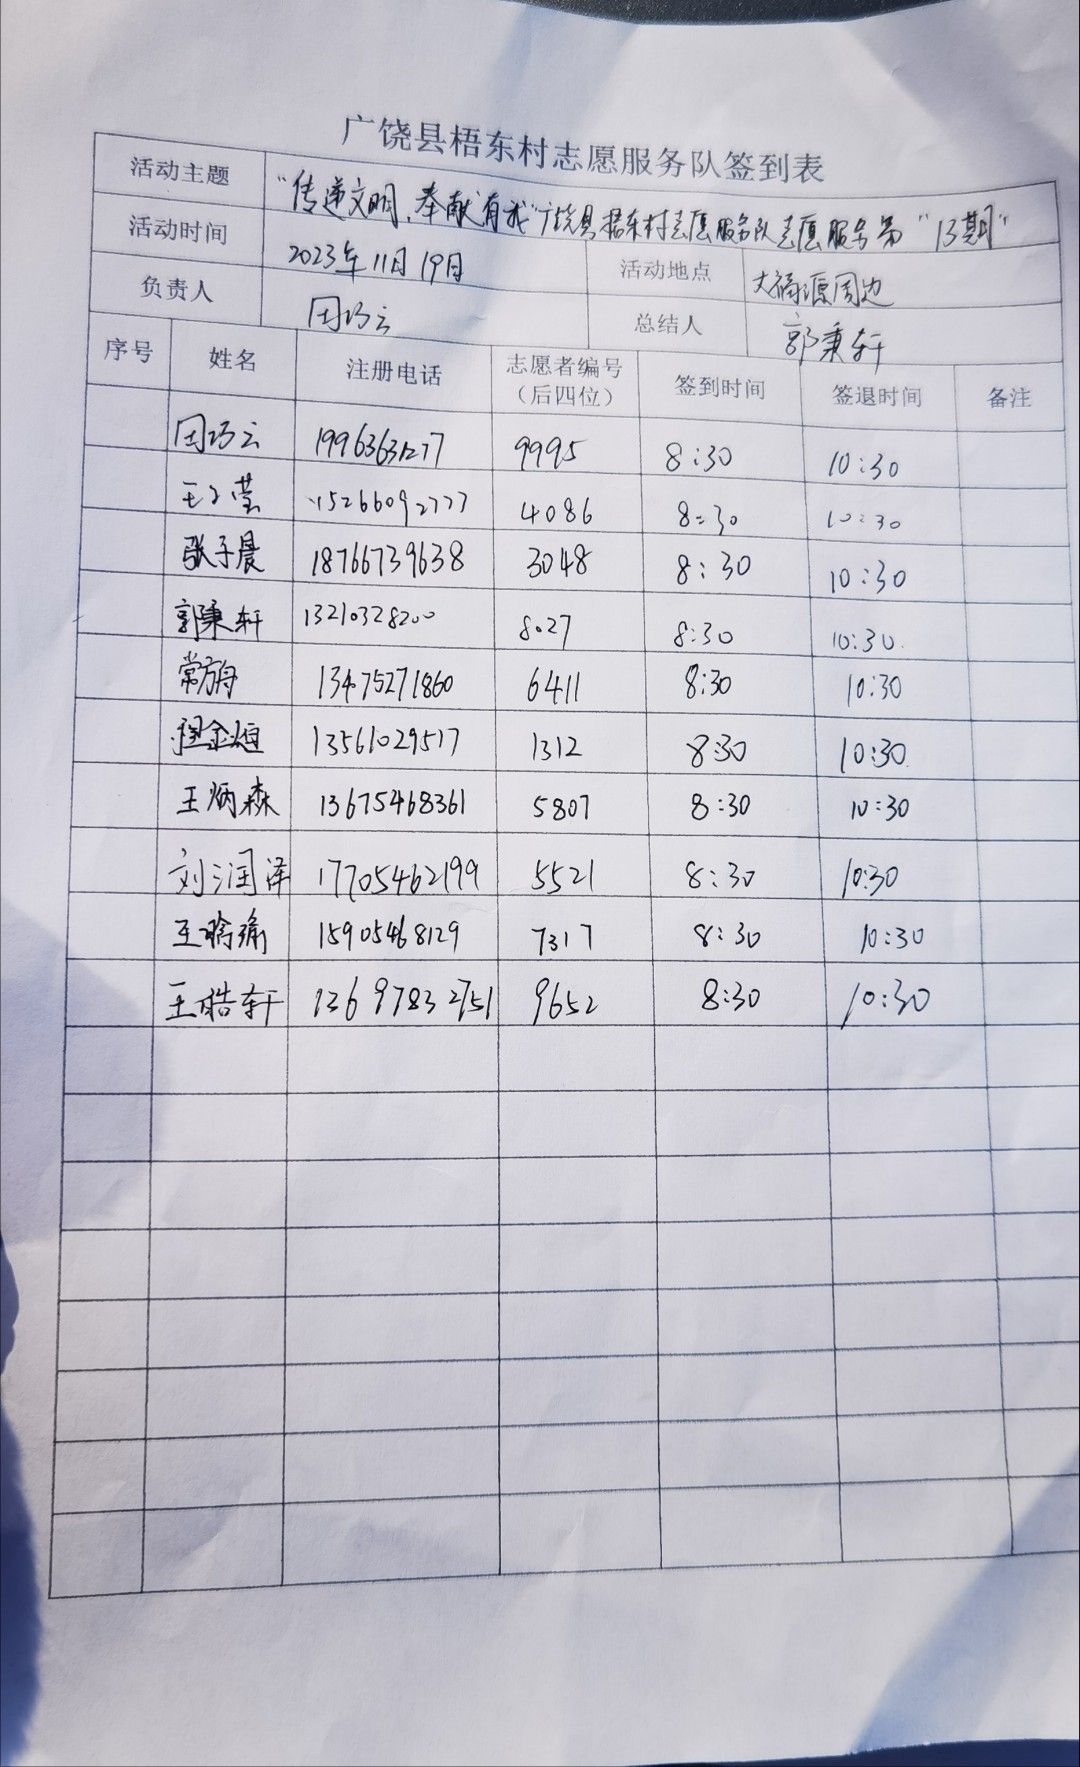 广饶县梧东村志愿服务队签到表
活动主题 "传递文明,奉献有我"广饶县梧东村志愿服务队志愿服务第"13期"
活动时间 2023年11月19日 活动地点 大福源周边
负责人 田巧云 总结人 郭秉轩
序号 姓名 注册电话 志愿者编号(后四位) 签到时间 签退时间 备注
田巧云 19963631277 9995 8:30 10:30
王子莹 15266092777 4086 8:30 10:30
张子晨 18766739638 3048 8:30 10:30
郭秉轩 13210328200 8027 8:30 10:30
常方舟 13475271860 6411 8:30 10:30
程金烜 13561029517 1312 8:30 10:30
王炳森 13675468361 5807 8:30 10:30
刘润泽 17705462199 5521 8:30 10:30
王晗瑜 15905468129 7317 8:30 10:30
王皓轩 13697832751 9652 8:30 10:30